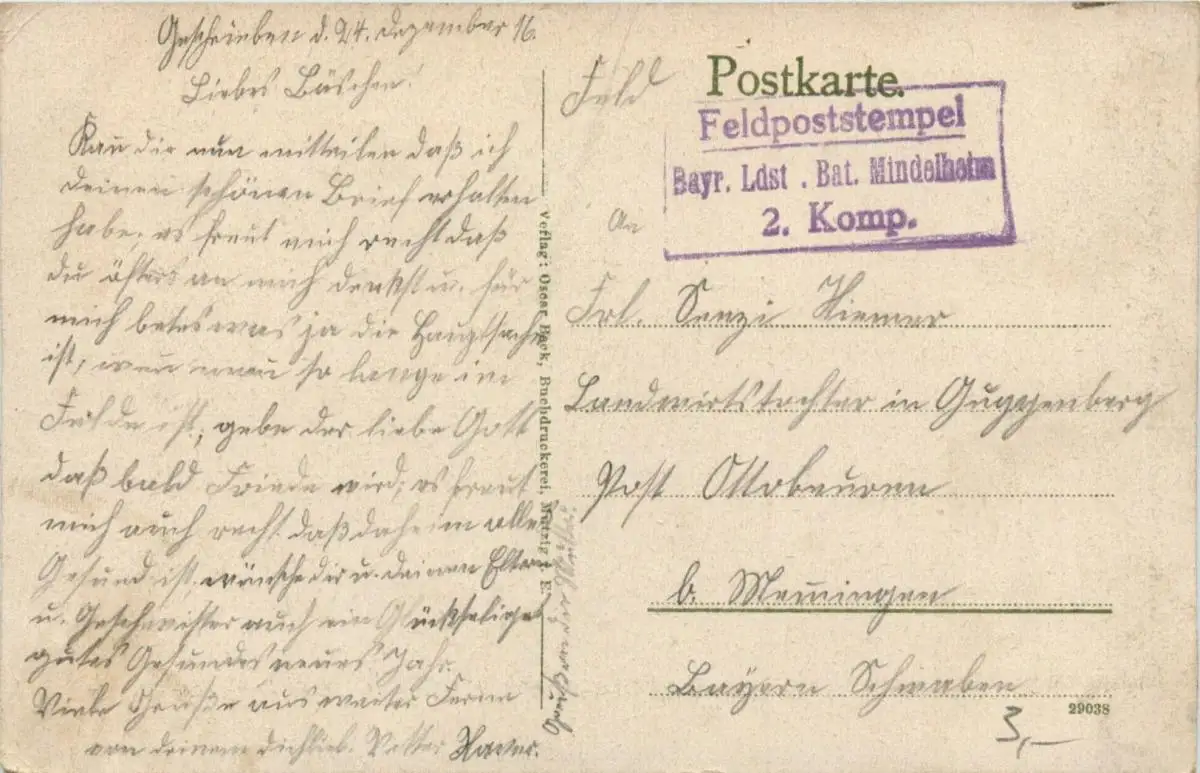 Geschrieben d. 24. Dezember 16.
Liebes Bäschen!
Kan dir nun mitteilen daß ich
deinen schönen Brief erhalten
habe, es freut mich recht daß
du öfters an mich denkst u. für
mich betes was ja die Hauptsache
ist, wen man so lange im
Felde ist, gebe der liebe Gott
daß bald Friede wird, es freut
mich auch recht daß daheim alles
Gesund ist, wünsche dir u. deinen Eltern
u. Geschwister auch ein Glückseliges
gutes Gesundes neues Jahr.
Viele Grüße aus weiter Ferne
von deinem dichlieb. Vetter Xaver.
Verlag: Oscar Bäck, Buchdruckerei, Mutzig i. E.
Feld
Postkarte.
Feldpoststempel
Bayr. Ldst. Bat. Mindelheim
2. Komp.
An
Frl. Senzi Hiemer
Landwirtstochter in Guggenberg
Post Ottobeuren
b. Memingen
Bayern Schwaben
29038
3,—